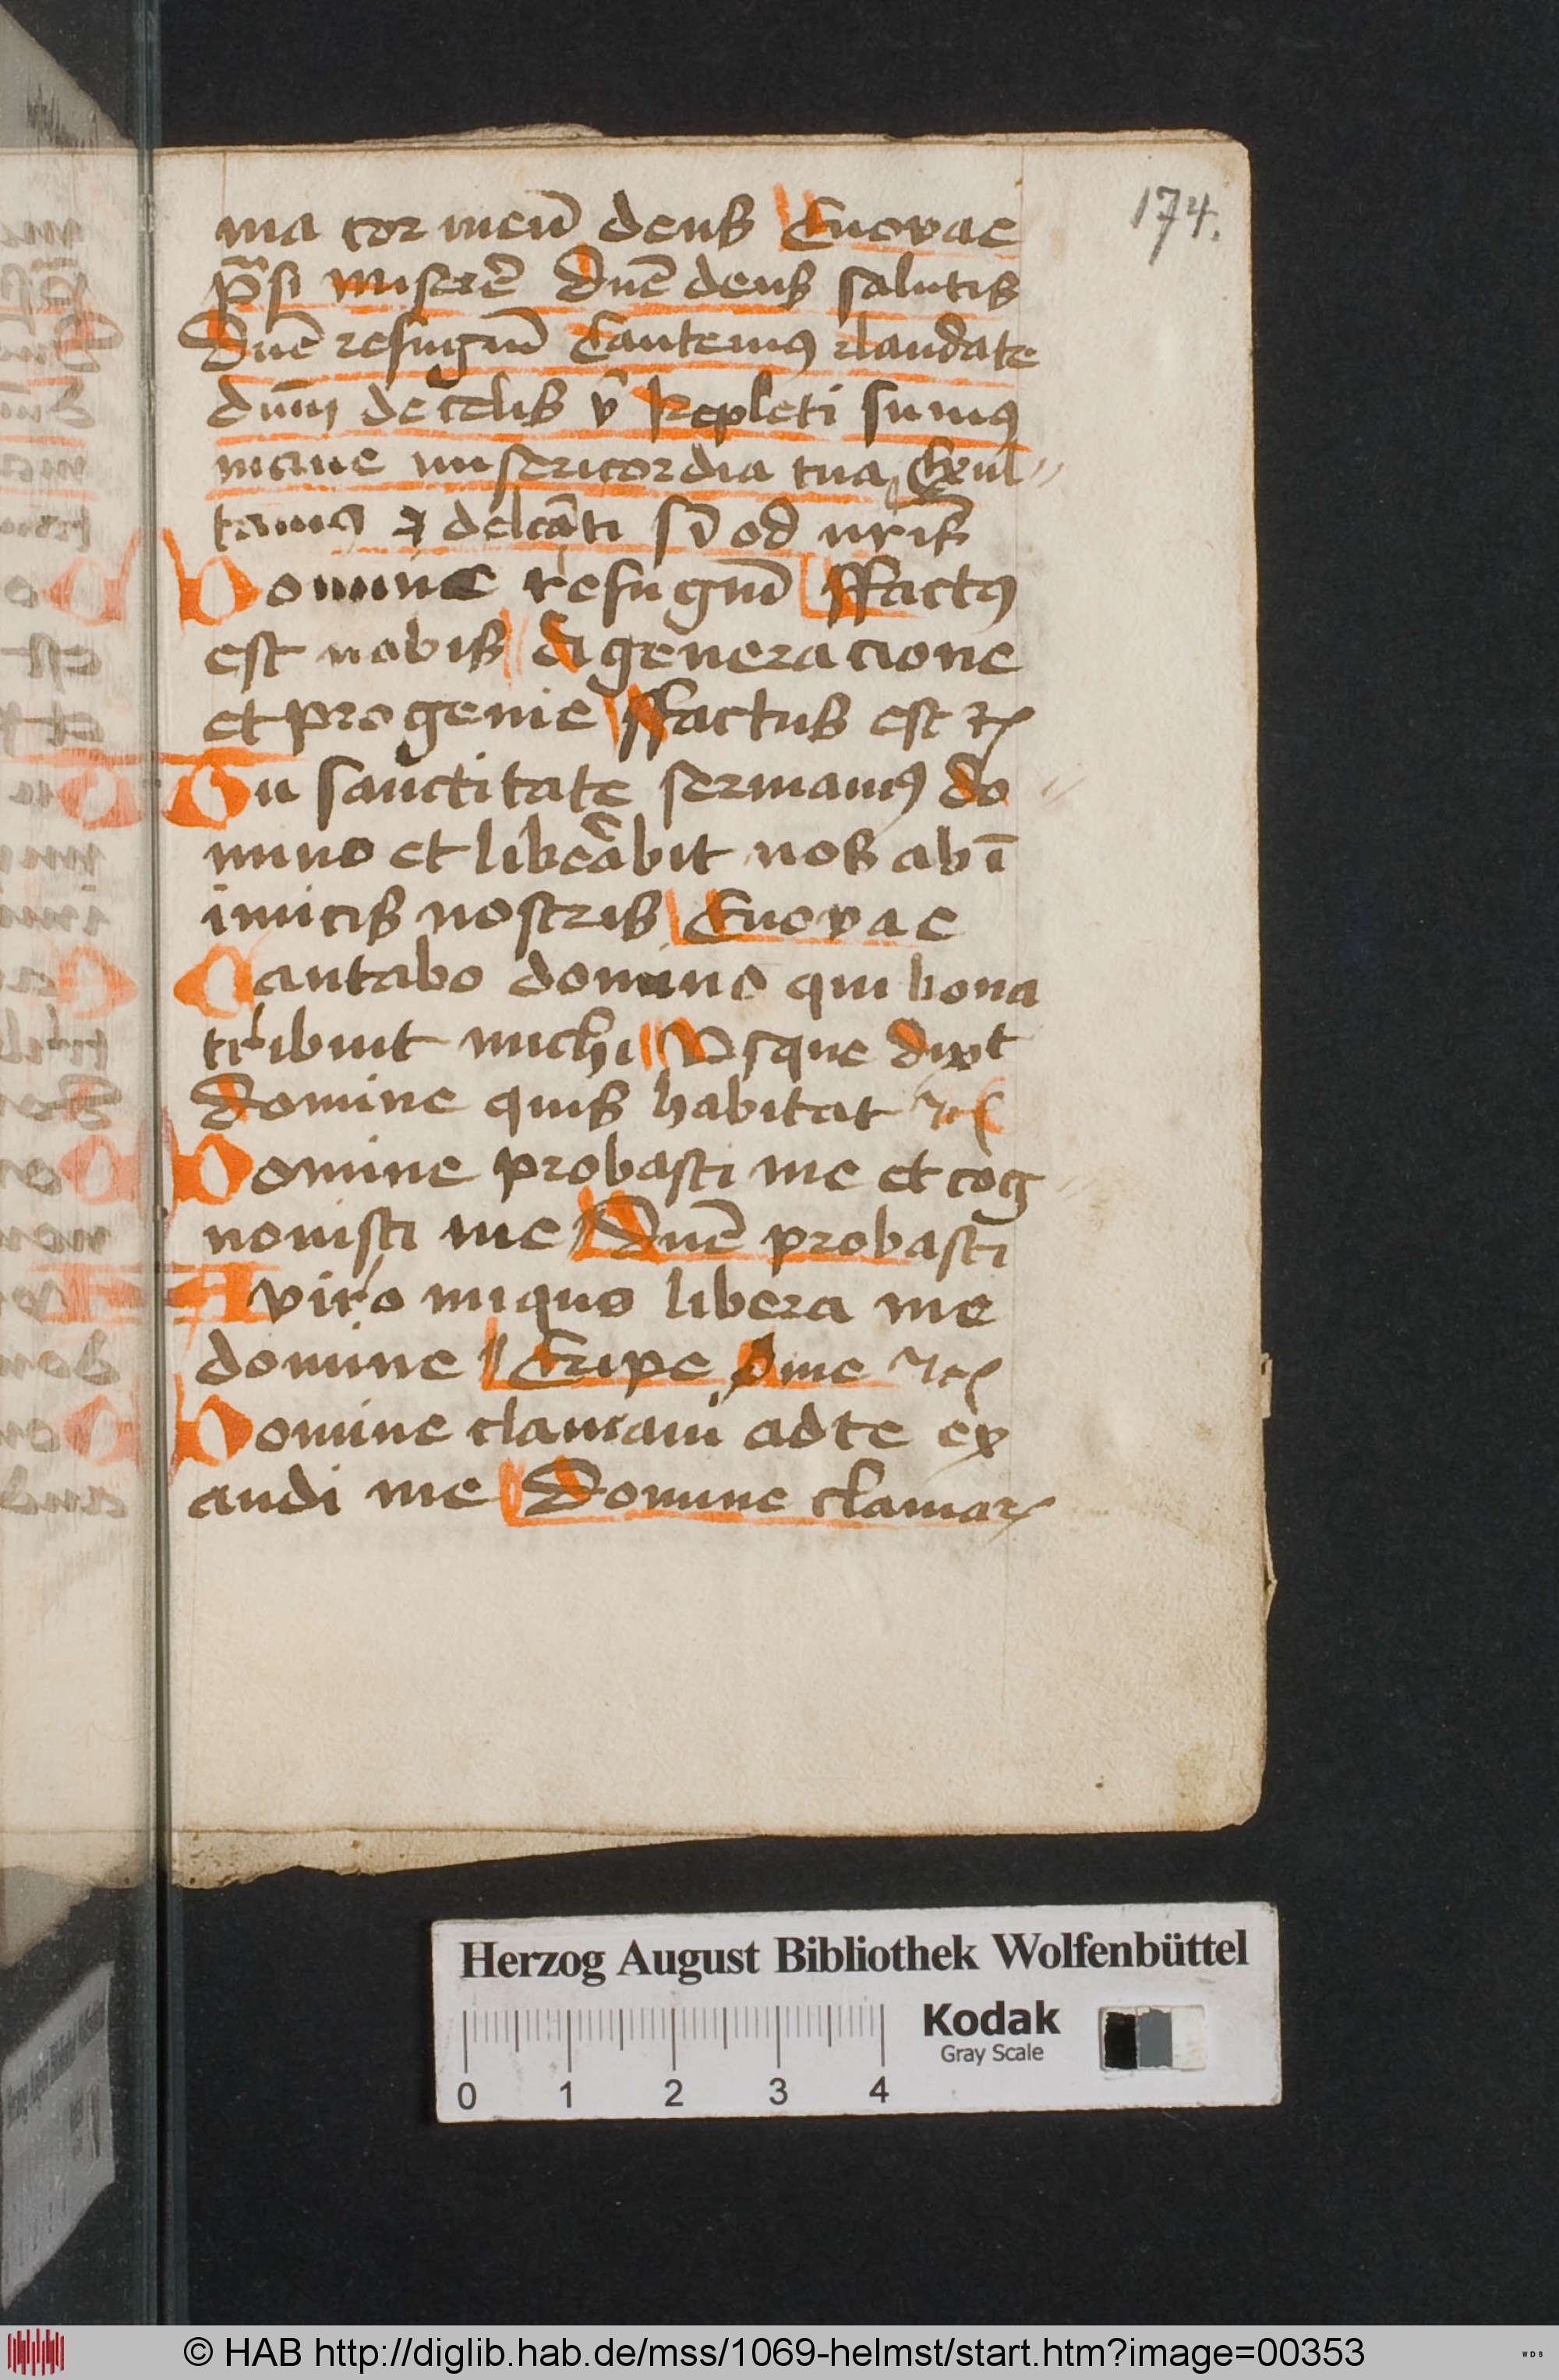 174.
ma cor meū deus Euovae
p̄si miserē dn̄e deus salutis
Dn̄e refugiū Cantemus laudate
dnm̄ de celis v̄ Repleti sumus
mane misericordia tua Exul
tamus et delcāti
Domine refugiū ffactus
est nobis a generacione
et progenie ffactus est
In sanctitate sermamus do
mino et liberabit nos ab ī
imicis nostris Euovae
Cantabo domino qui bona
tribuit michi Vsque dixt
Domine quis habitat
Domine probasti me et cog
nouisti me Dn̄e probasti
A viro iniquo libera me
domine Eripe me
Domine clamaui ad te ex
audi me Domine clamar
Herzog August Bibliothek Wolfenbüttel
Kodak
Gray Scale
0 1 2 3 4
© HAB http://diglib.hab.de/mss/1069-helmst/start.htm?image=00353
WDB